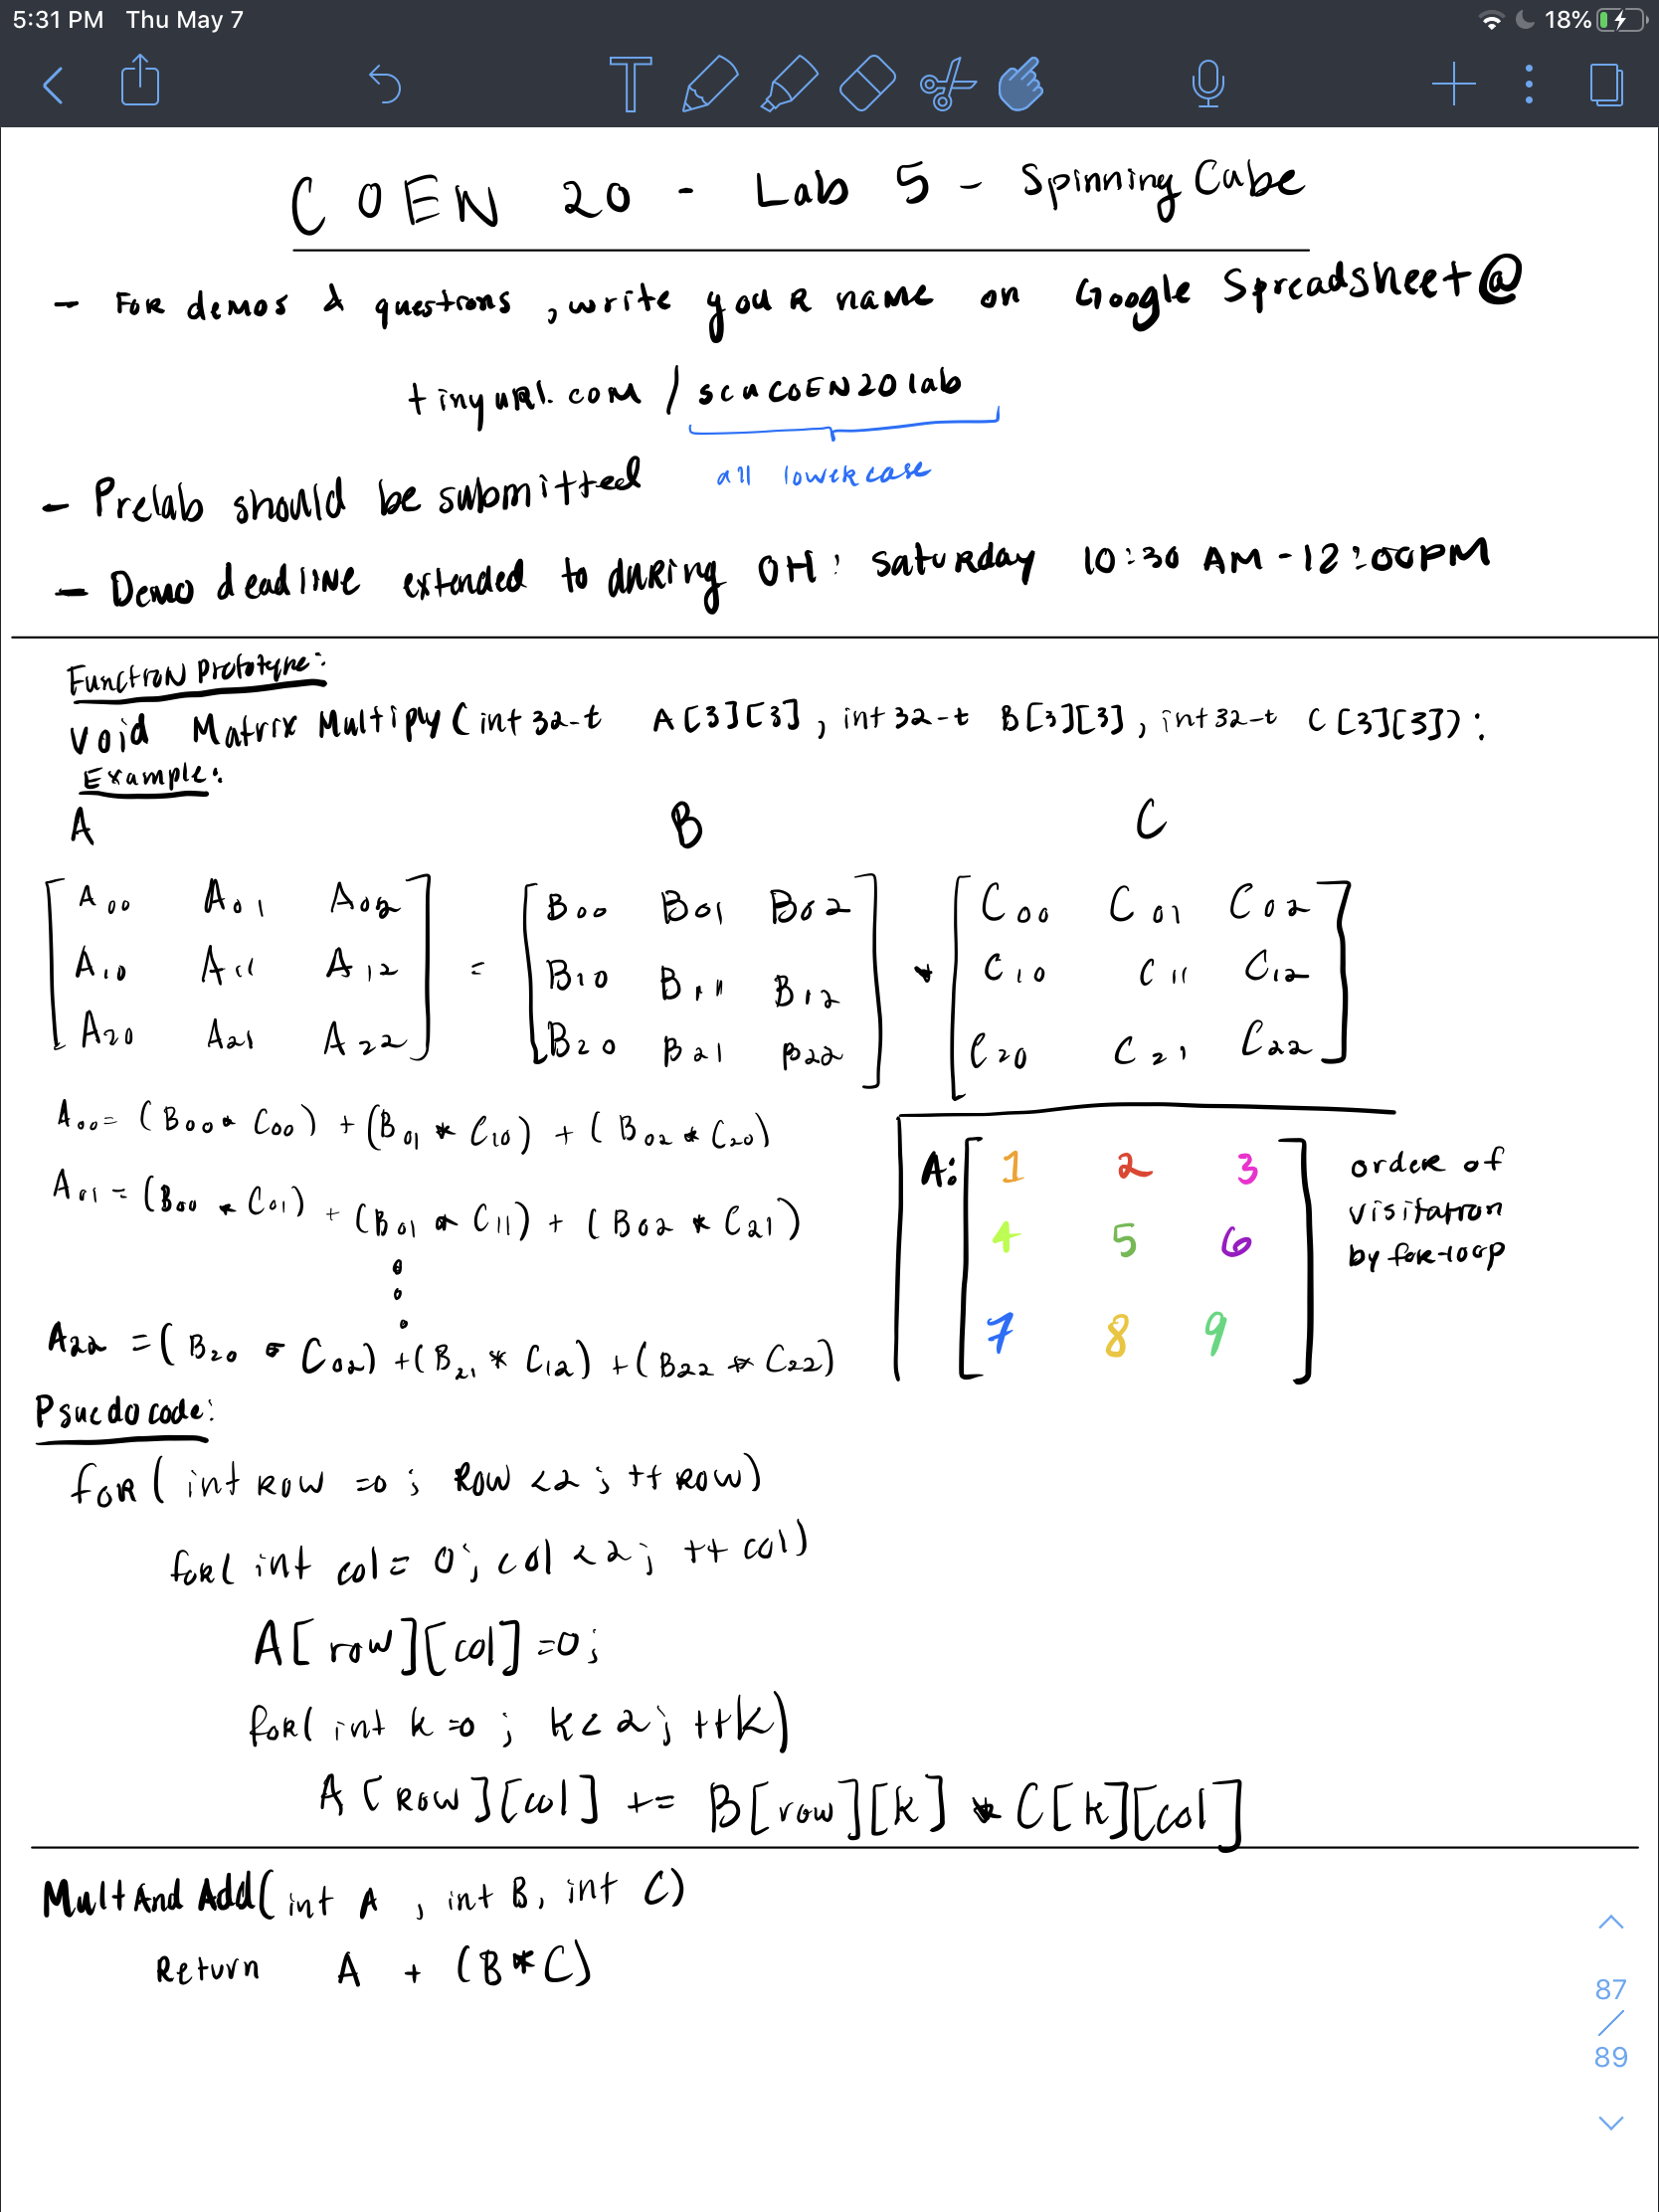 5:31 PM Thu May 7 18%
T
COEN 20 - Lab 5 - Spinning Cube
- For demos & questions, write your name on Google Spreadsheet @
tinyurl.com / scuCOEN20lab
all lowercase
- Prelab should be submitted
- Demo deadline extended to during OH: Saturday 10:30 AM - 12:00PM
Function Prototype:
Void Matrix Multiply (int 32-t A[3][3], int 32-t B[3][3], int 32-t C[3][3]):
Example:
A B C
A00 A01 A02 B00 B01 B02 C00 C01 C02
A10 A11 A12 = B10 B11 B12 * C10 C11 C12
A20 A21 A22 B20 B21 B22 C20 C21 C22
A00 = (B00 * C00) + (B01 * C10) + (B02 * C20)
A01 = (B00 * C01) + (B01 * C11) + (B02 * C21)
A22 = (B20 * C02) + (B21 * C12) + (B22 * C22)
A: 1 2 3
4 5 6
7 8 9
order of
visitation
by for-loop
Psuedo code:
for( int row =0 ; Row <2 ; ++ row)
for( int col = 0; col <2; ++ col)
A[row][col] =0;
for( int k =0 ; k< 2; ++k)
A[Row][col] += B[row][k] * C[k][col]
Mult And Add( int A , int B, int C)
Return A + (B * C)
87
/
89